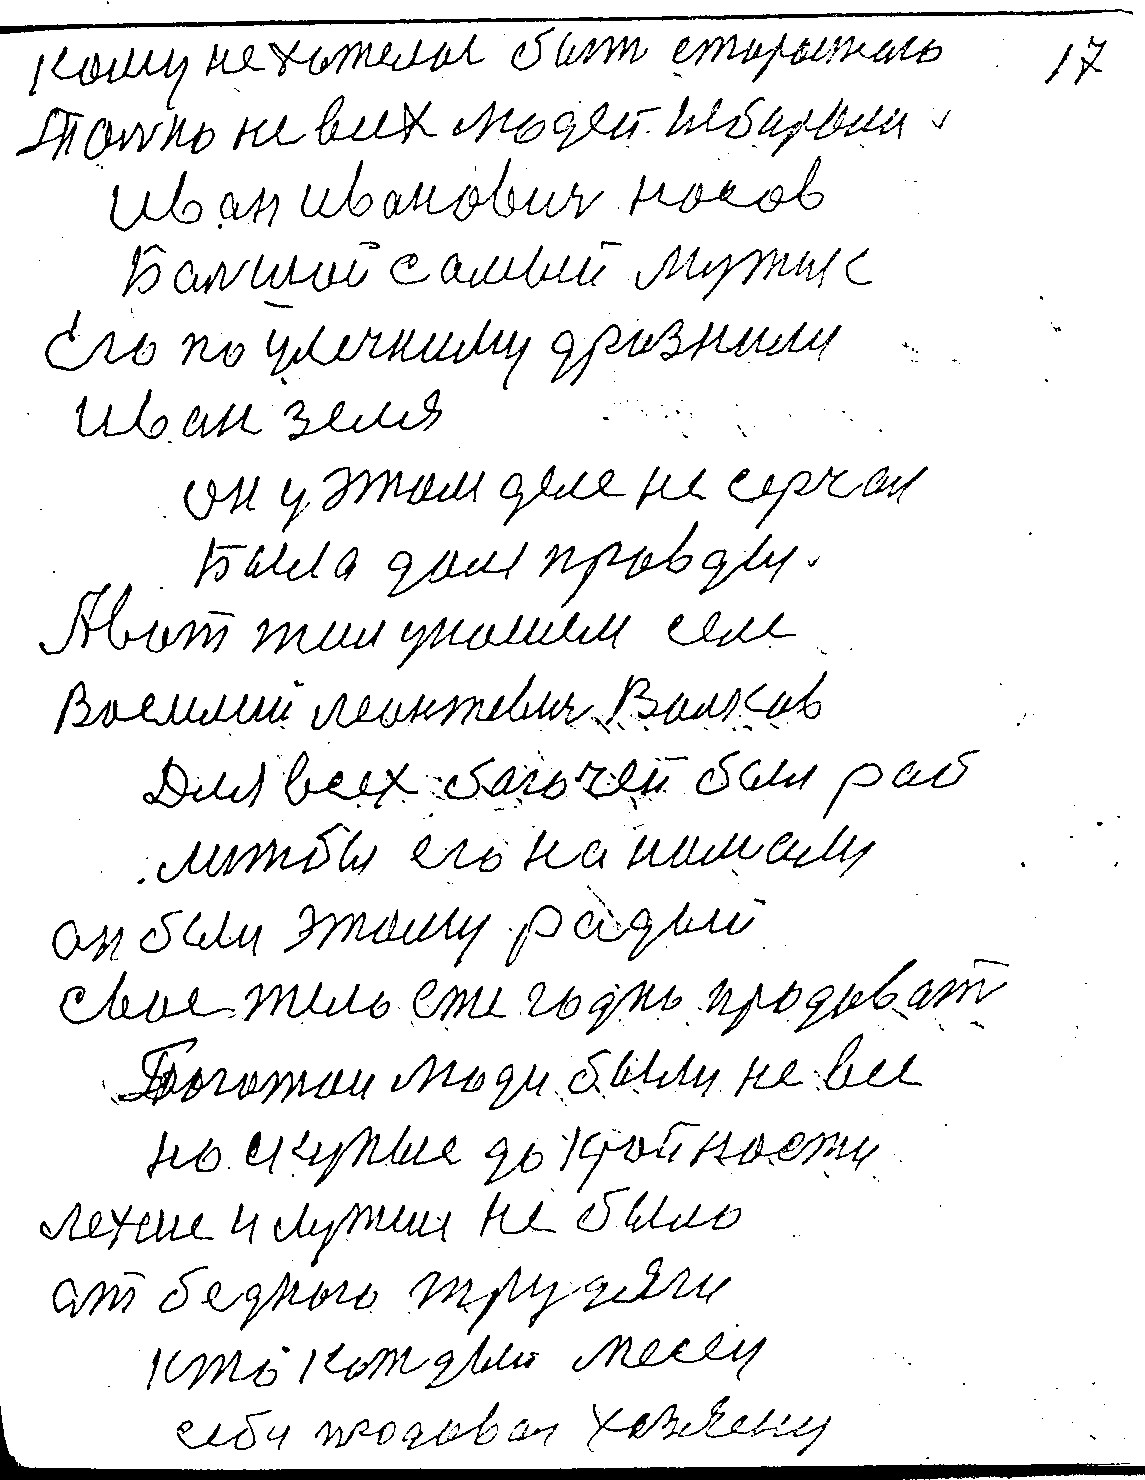 Кому не хателос быт старостаю 17
Толко не всех людей избирали
Иван Иванович носов
Балшой самый мужик
Его по уличниму дразнили
Иван зеля
он у этом деле не серчал
Была доля правды.
А вот жил унашем селе
Василий леонтевич Волков
Для всех багачей был раб
литбы его нанимали
он был этому радый
свое тело ежегодно продават
Богатои люди были не все
но скупые до крайности
легше и лутши не было
от бедного трудяги
кто каждый месец
себя продавал хозяену